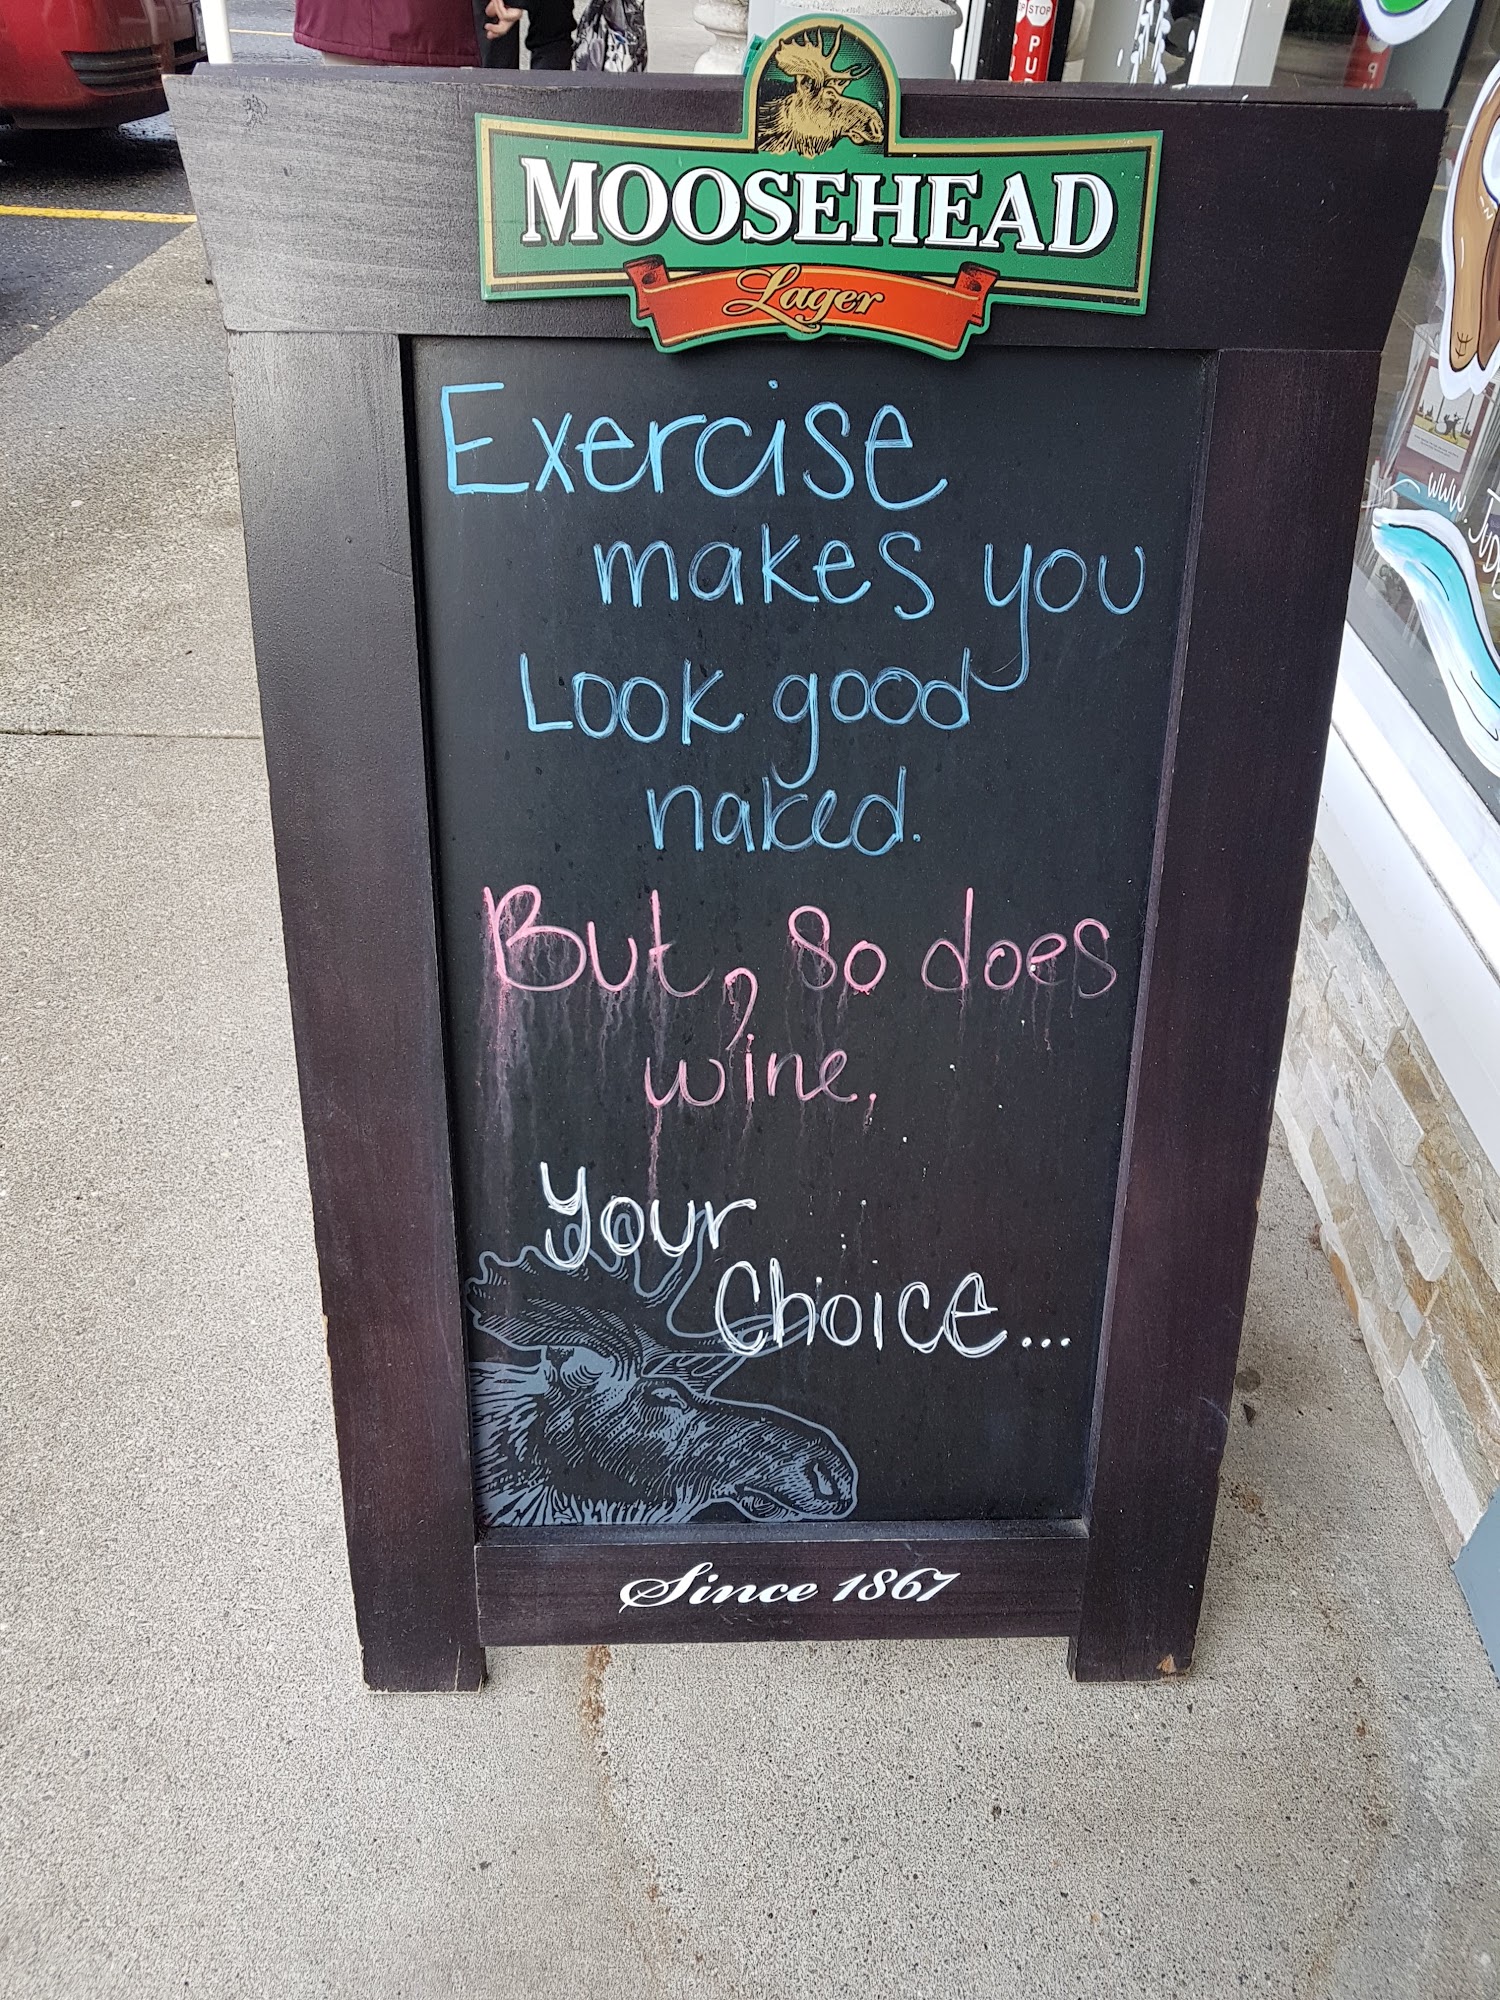 STOP
PU
MOOSEHEAD
Lager
Exercise
makes you
Look good
naked.
But, so does
wine.
Your
Choice...
Since 1867
www.